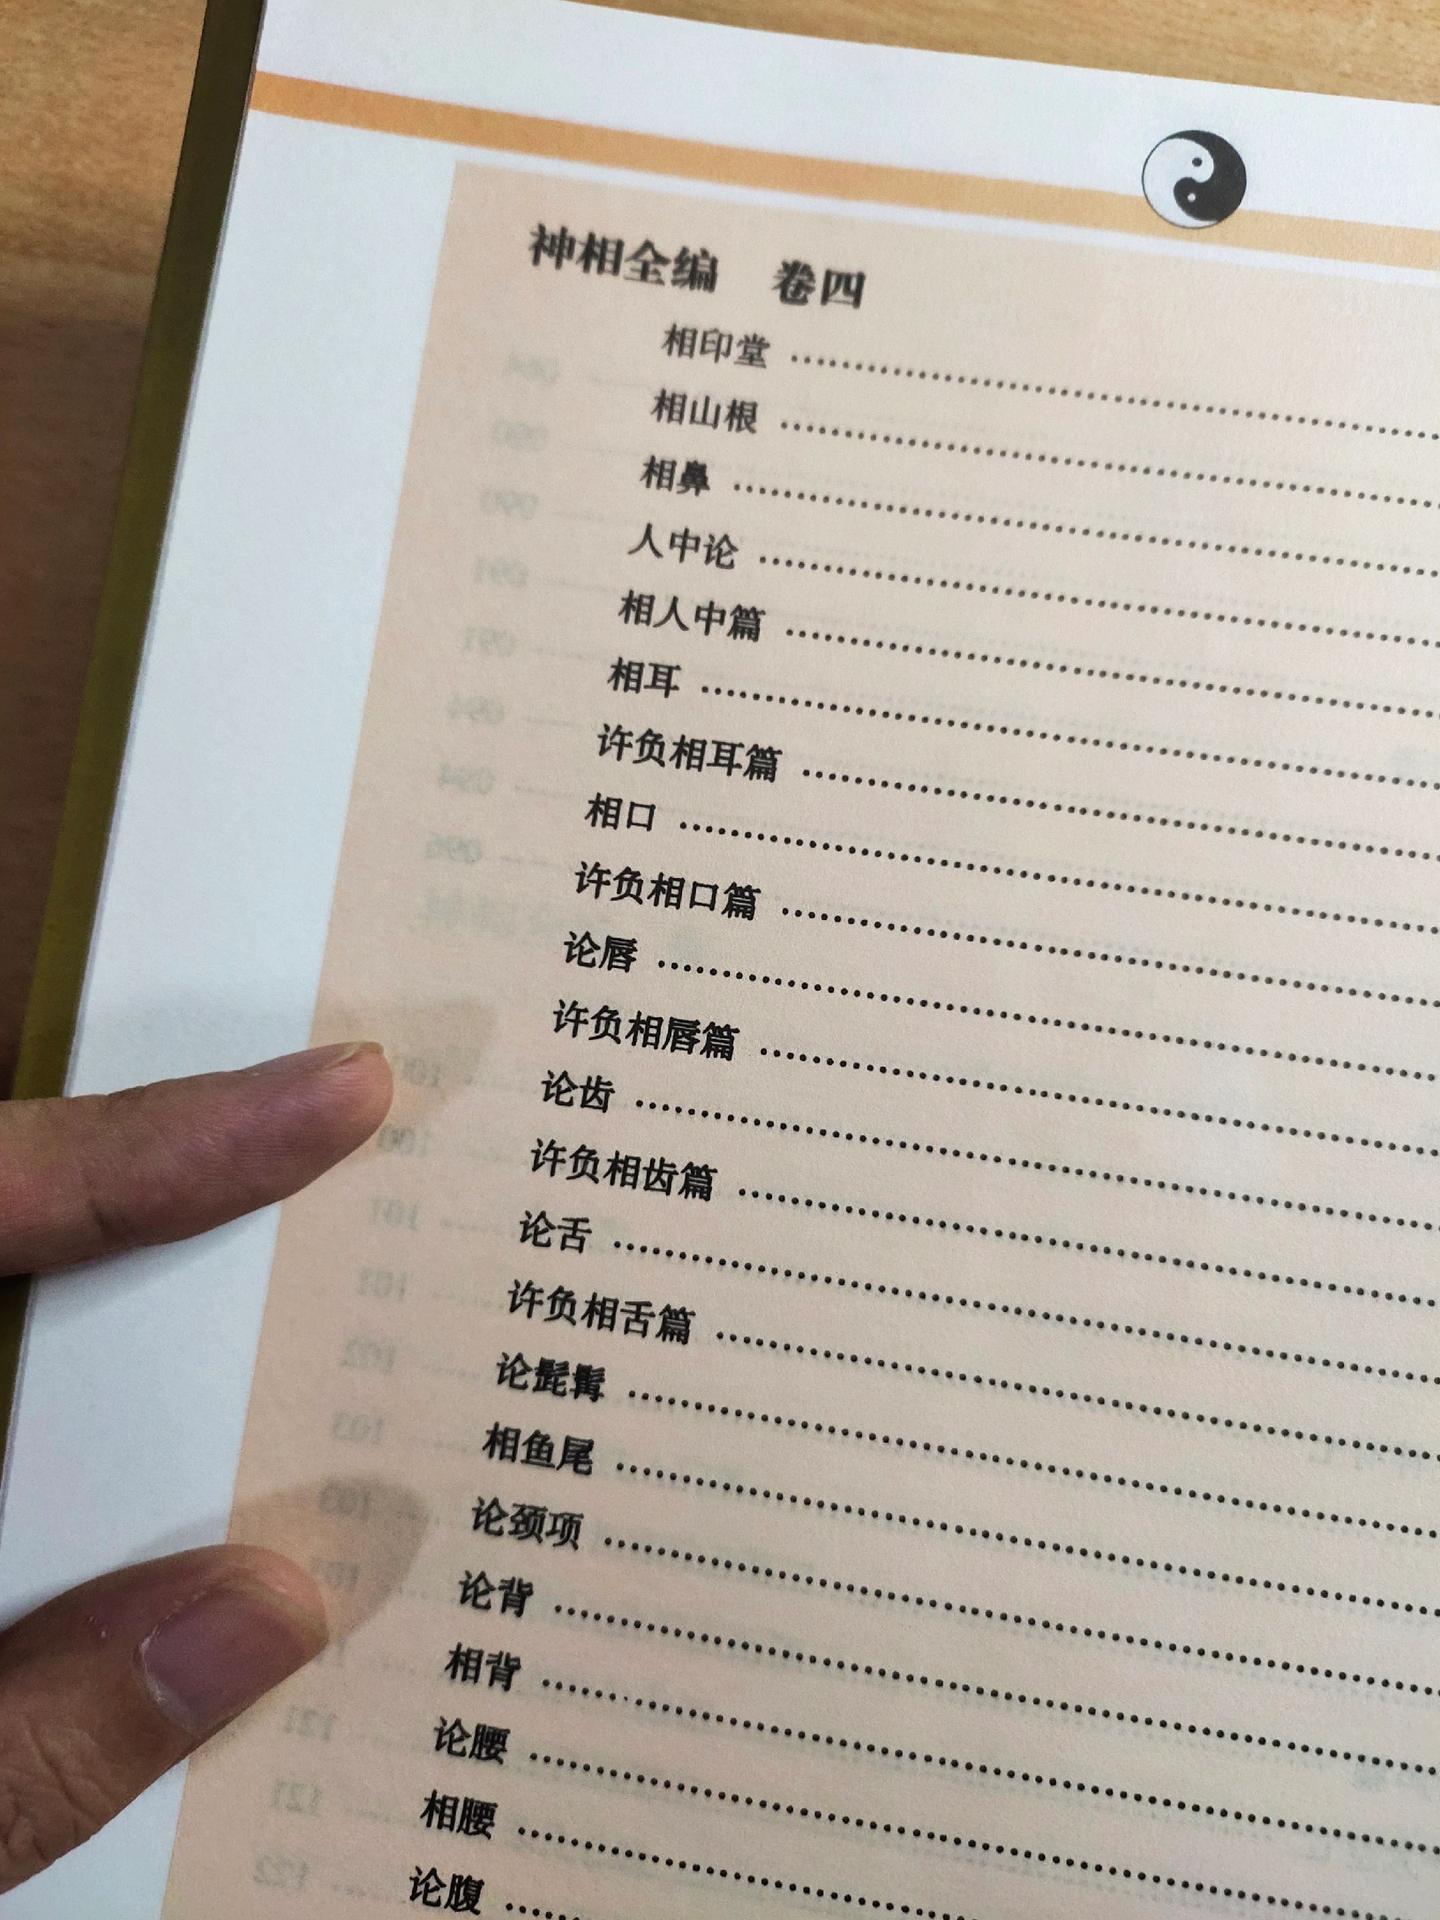 神相全编 卷四
相印堂
相山根
相鼻
人中论
相人中篇
相耳
许负相耳篇
相口
许负相口篇
论唇
许负相唇篇
论齿
许负相齿篇
论舌
许负相舌篇
论髭髯
相鱼尾
论颈项
论背
相背
论腰
相腰
论腹